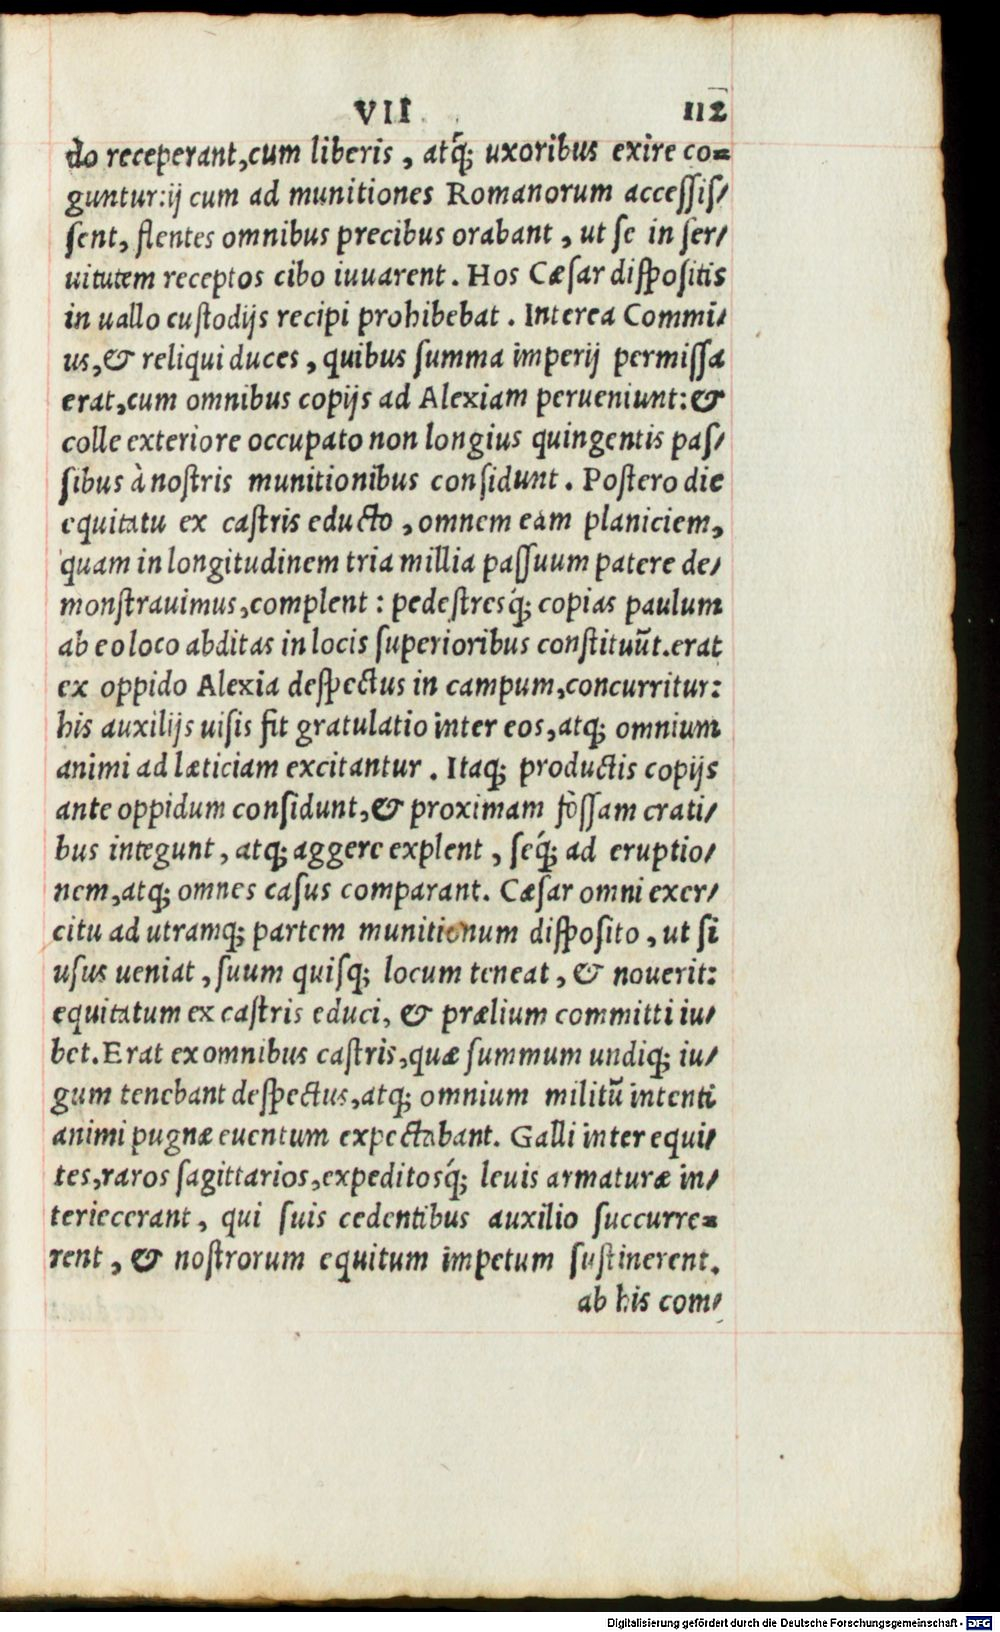 VII 112
do receperant,cum liberis , atq́; uxoribus exire co=
guntur:ij cum ad munitiones Romanorum accessis/
sent, flentes omnibus precibus orabant , ut se in ser/
uitutem receptos cibo iuuarent . Hos Cæsar dispositis
in uallo custodijs recipi prohibebat . Interea Commi/
us,& reliqui duces , quibus summa imperij permissa
erat,cum omnibus copijs ad Alexiam perueniunt:&
colle exteriore occupato non longius quingentis pas/
sibus à nostris munitionibus considunt . Postero die
equitatu ex castris educto , omnem eam planiciem,
quam in longitudinem tria millia passuum patere de/
monstrauimus,complent : pedestresq́; copias paulum
ab eo loco abditas in locis superioribus constituūt.erat
ex oppido Alexia despectus in campum,concurritur:
his auxilijs uisis fit gratulatio inter eos,atq; omnium
animi ad læticiam excitantur . Itaq; productis copijs
ante oppidum considunt,& proximam fossam crati/
bus integunt , atq; aggere explent , seq́; ad eruptio/
nem,atq; omnes casus comparant. Cæsar omni exer/
citu ad utramq; partem munitionum disposito , ut si
usus ueniat , suum quisq; locum teneat , & nouerit:
equitatum ex castris educi, & prælium committi iu/
bet.Erat ex omnibus castris,quæ summum undiq; iu/
gum tenebant despectus,atq; omnium militū intenti
animi pugnæ euentum expectabant. Galli inter equi/
tes,raros sagittarios,expeditosq́; leuis armaturæ in/
teriecerant , qui suis cedentibus auxilio succurre=
rent , & nostrorum equitum impetum sustinerent.
ab his com/
Digitalisierung gefördert durch die Deutsche Forschungsgemeinschaft - DFG